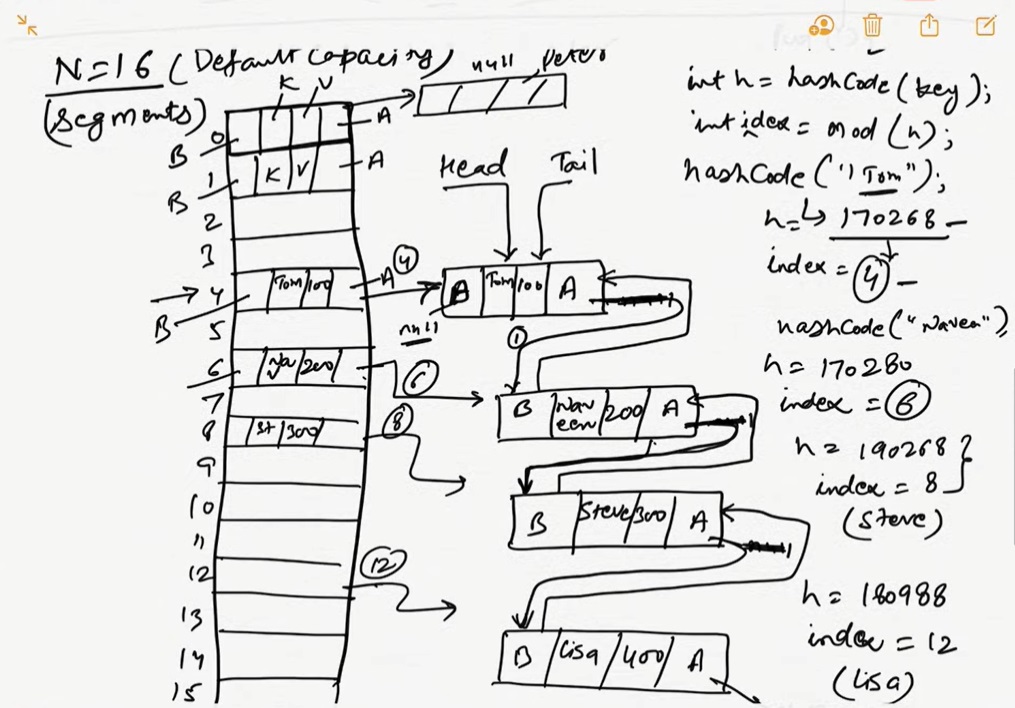 N=16 (Default capacity)
(segments)
K V
null Peter
A
B
0
K V
A
B
1
2
3
4
Tom/100
A
4
B
5
6
Na/200
6
7
8
St/300
8
9
10
11
12
12
13
14
15
Head Tail
B Tom 100 A
null
1
B Nav een/200/ A
B Steve/300 A
B /Lisa/400/ A
int h = hashCode(key);
int idex = mod(h);
hashCode("Tom");
h=↳ 170268 -
index = 4 -
hashCode("Naveen")
h = 170280
index = 6
h = 190268
index = 8
(Steve)
h = 180988
index = 12
(Lisa)